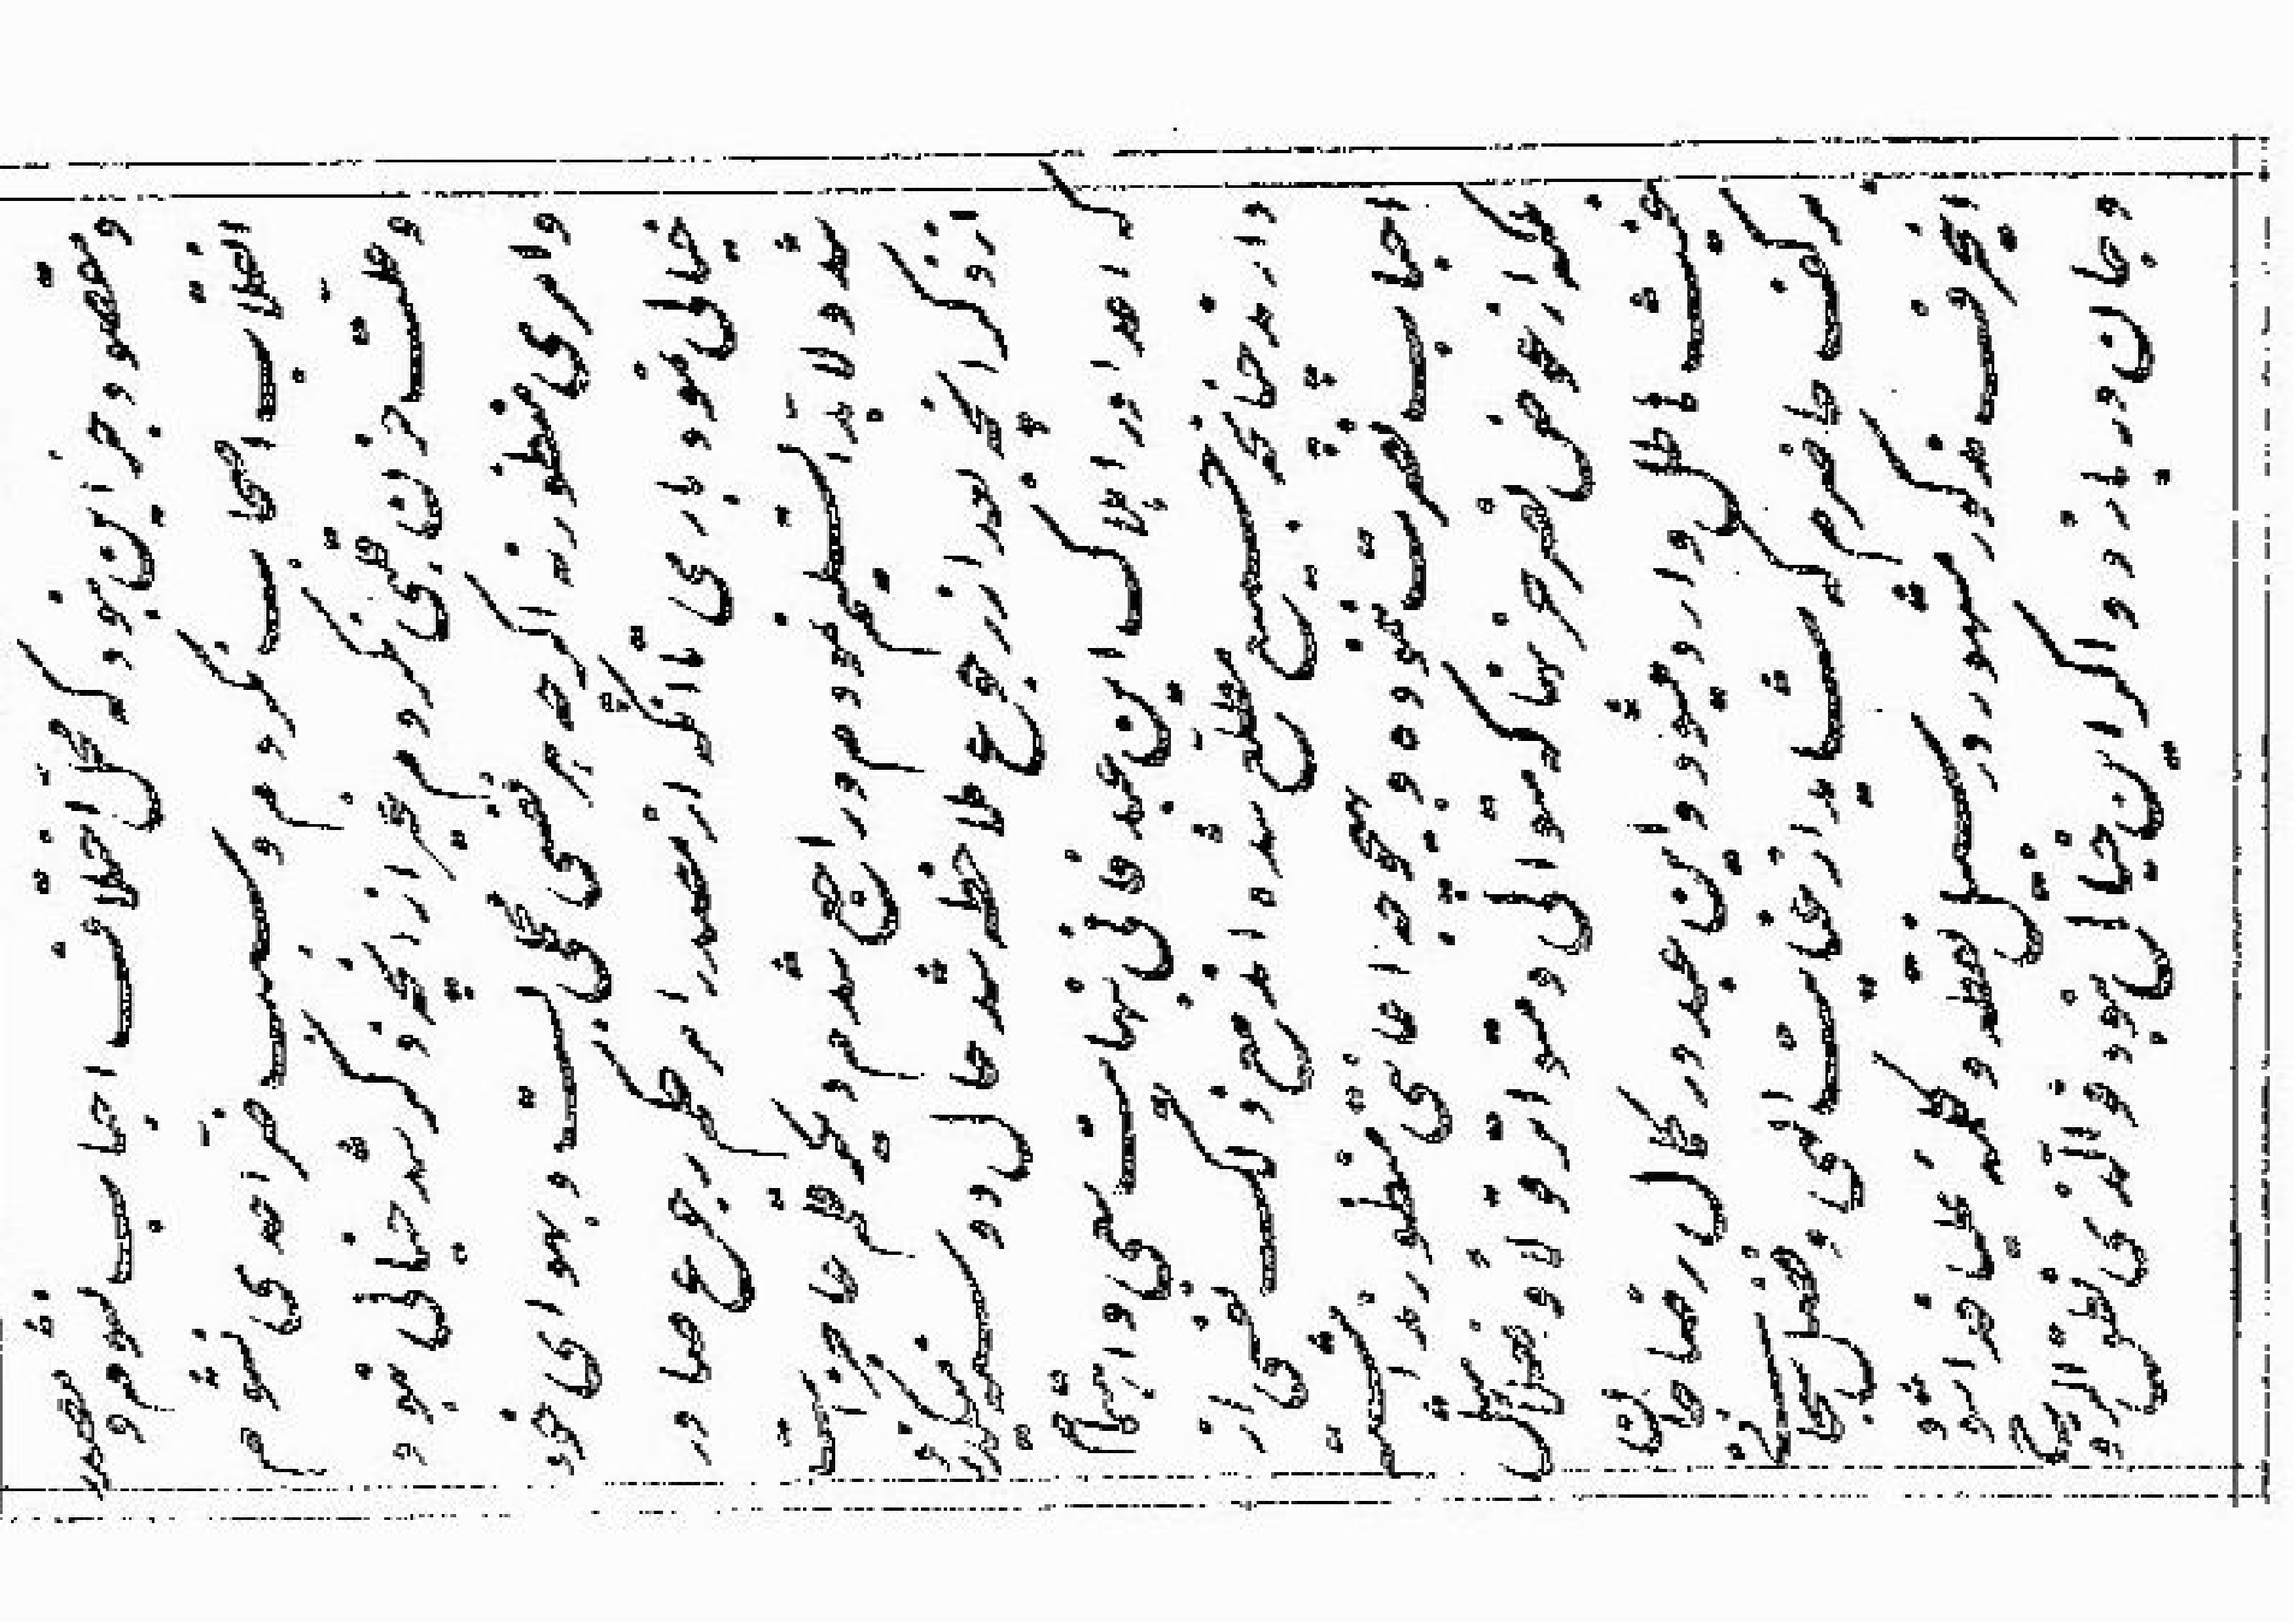 و مقصود جز این نبود که محل اختلاف احباب نشوم و مصدر
انقلاب اصحاب نگردم و سبب ضر احدی نشوم
و علت حزن قلبی نگردم غیر از آنچه ذکر شد خیالی نبود
و امری منظور نه اگر چه هر نفسی محملی بست و بهوای خود
خیالی نمود باری تا آنکه از مصدر امر حکم رجوع صادر
شد و لابداً تسلیم نمودم و راجع شدم دیگر قلم عاجز است
از ذکر آنچه بعد از رجوع ملاحظه شد حال دو سنه میگذرد
که اعدا در اهلاک این عبد فانی بنهایت سعی و اهتمام
دارند چنانچه جمیع مطلع شده اند مع ذلک نفسی از
احباب نصرت ننموده و بهیچوجه اعانتی منظور نداشته
بلکه از عوض نصر حزنها که متوالی و متواتر قولا و فعلا مثل
غیث هاطل وارد میشود و این عبد در کمال رضا جان
بر کف حاضرم که شاید از عنایت الهی و فضل سبحانی این
حرف مذکور مشهور در سبیل نقطه و کلمه علیا فدا شود
و جان دربازد و اگر این خیال نبود فوالذی نطق الروح